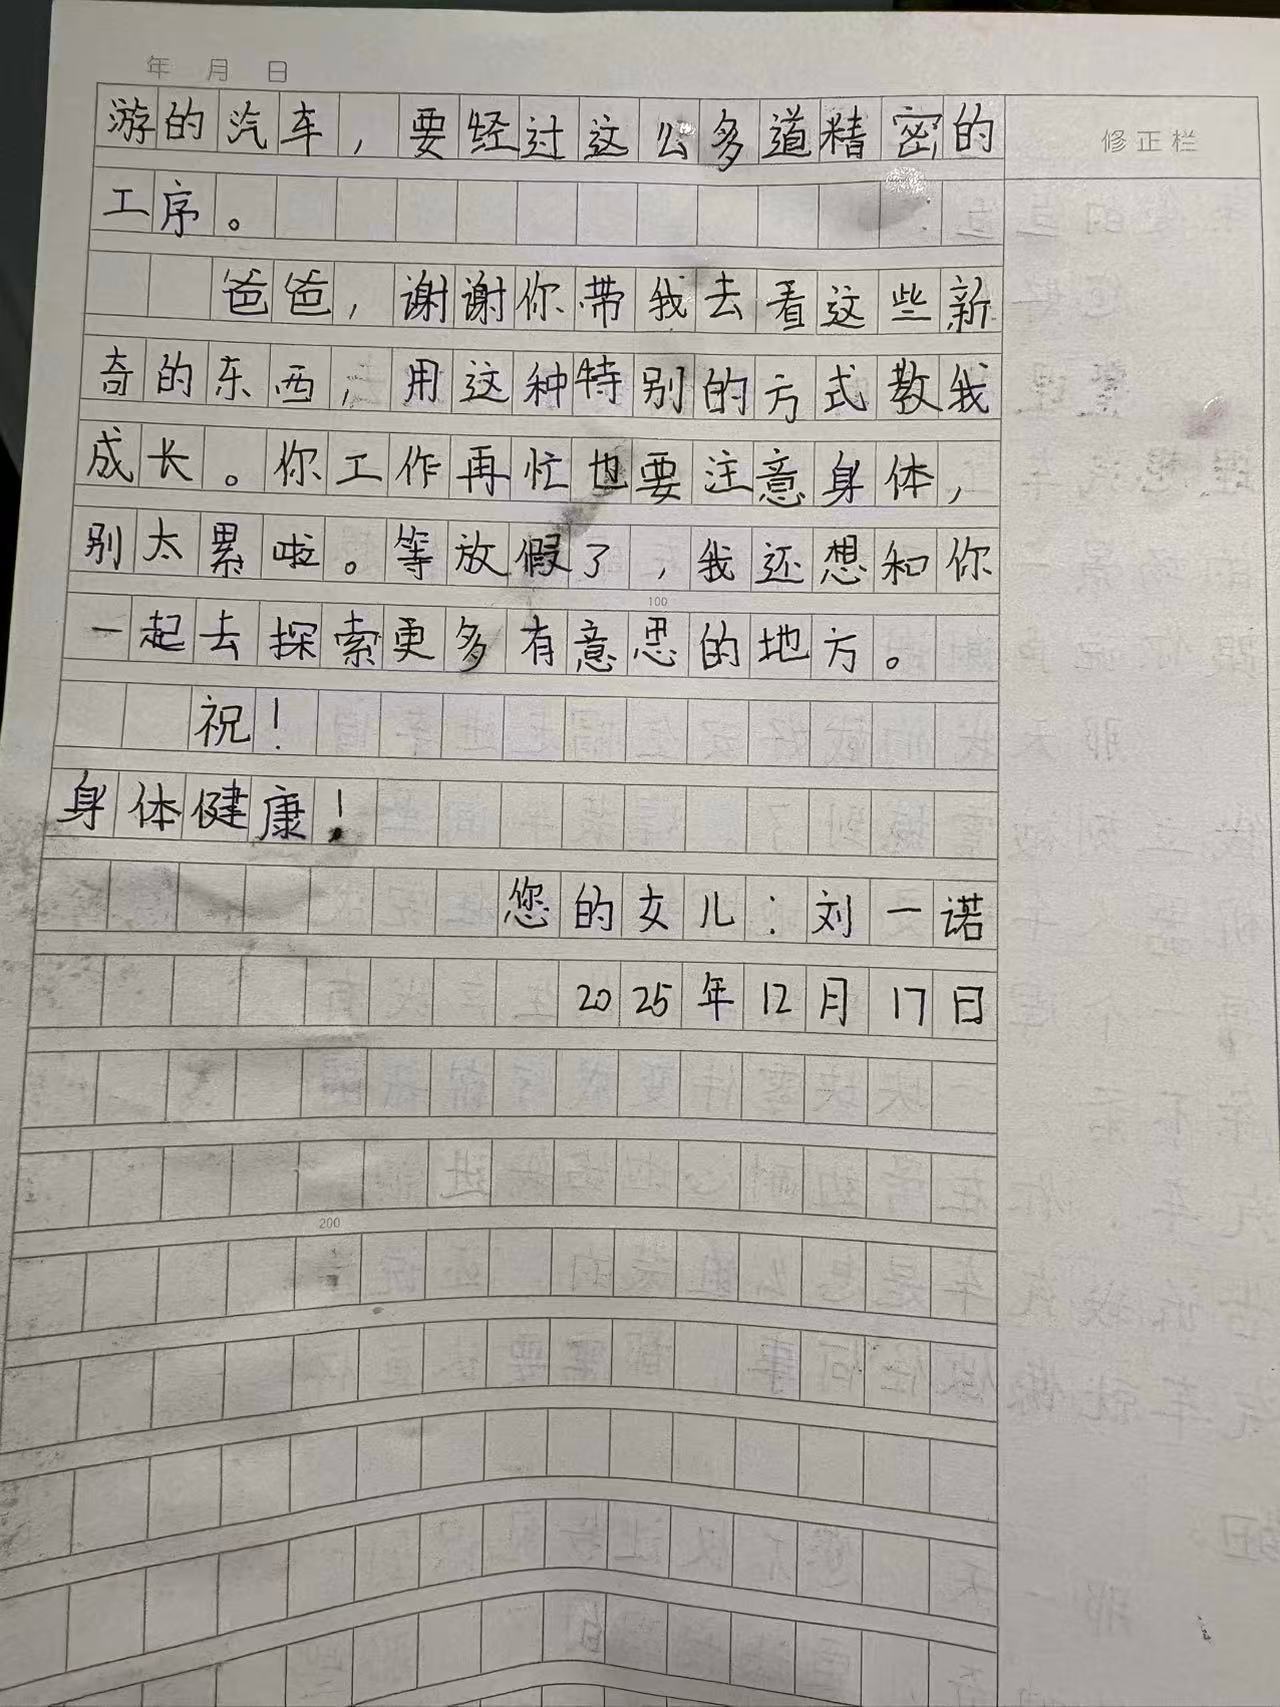 年 月 日
修正栏
游的汽车，要经过这么多道精密的
工序。
爸爸，谢谢你带我去看这些新
奇的东西，用这种特别的方式教我
成长。你工作再忙也要注意身体，
别太累啦。等放假了，我还想和你
100
一起去探索更多有意思的地方。
祝！
身体健康！
您的女儿：刘一诺
2025年12月17日
200